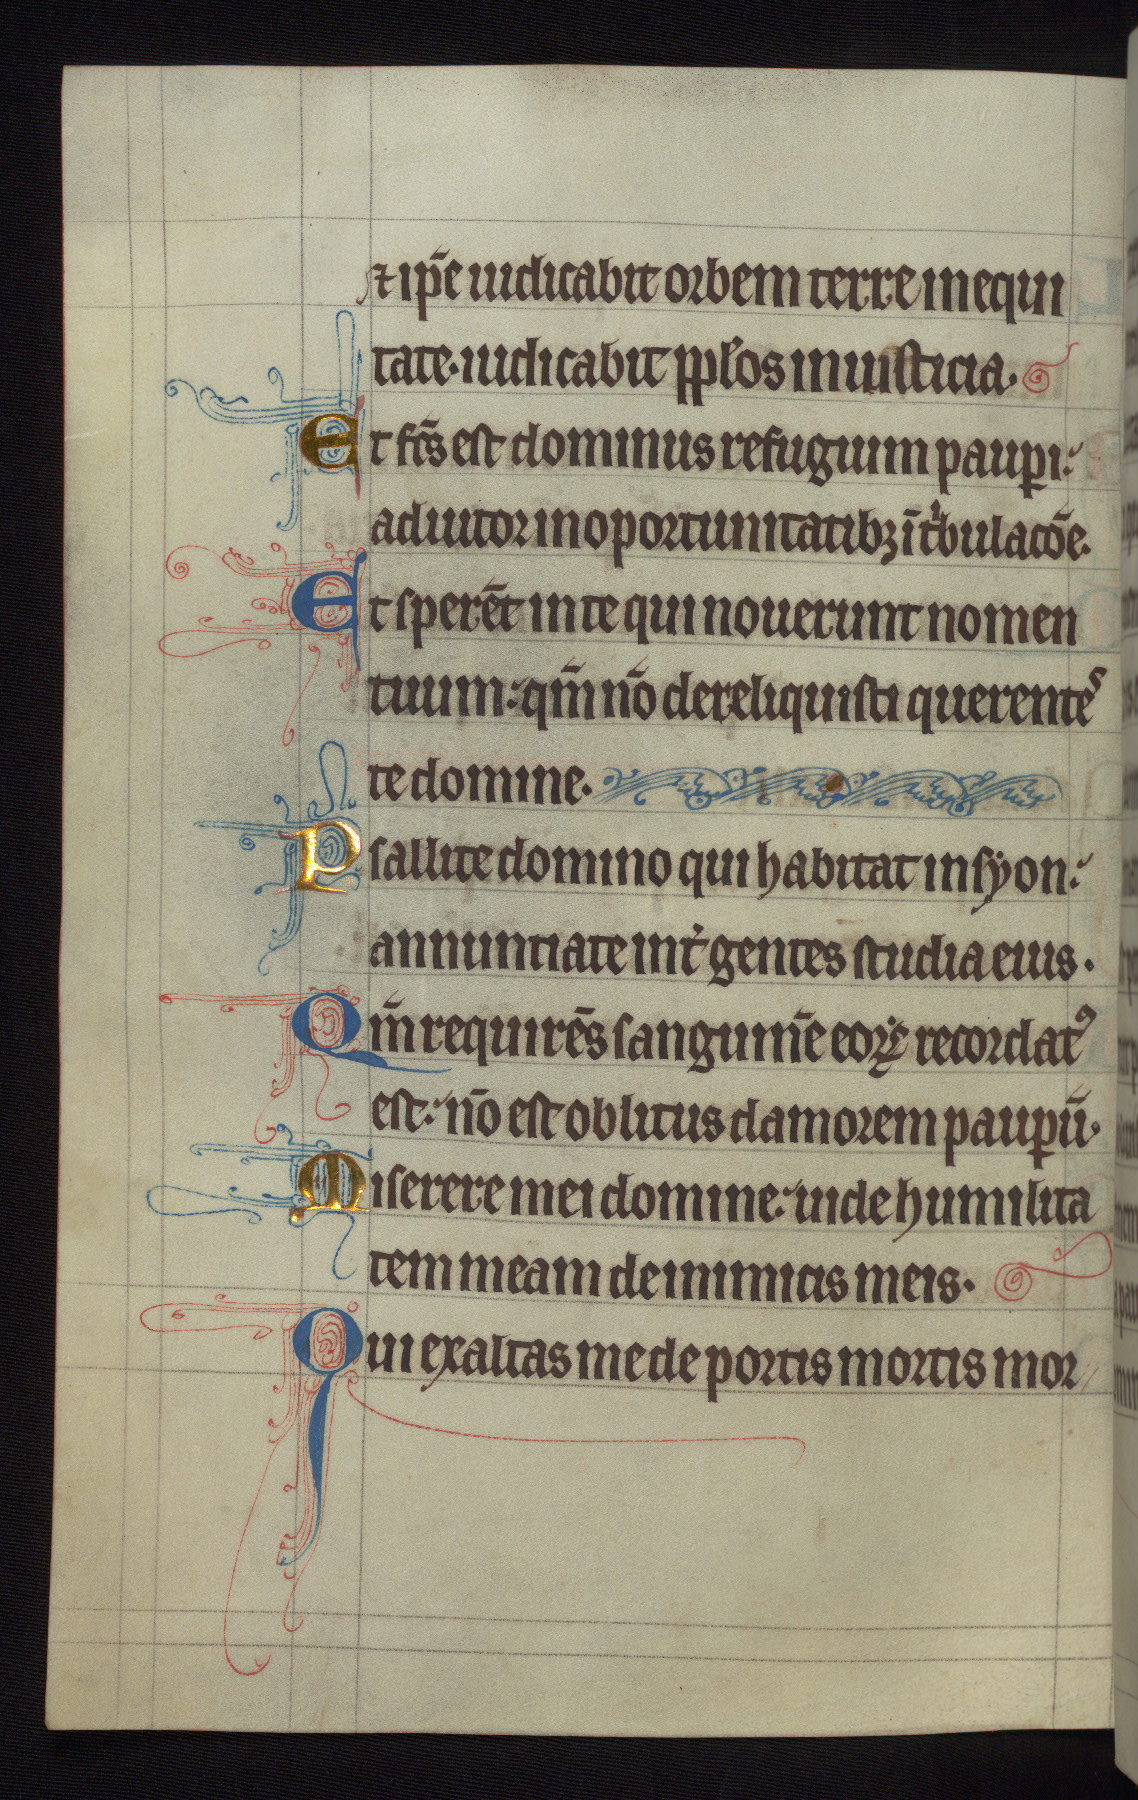 ⁊ ip̄e iudicabit orbem terre in equi
tate· iudicabit pp̄los in iusticia·
Et fc̄s est dominus refugium paup̲i:
adiutor in oportunitatibꝫ ī tͥbulacōe·
Et sperēt in te qui nouerunt nomen
tuum: qm̄ nō dereliquisti querentes
te domine·
Psallite domino qui habitat in syon:
annuntiate int̉ gentes studia eius·
Qm̄ requirēs sanguinē eoꝝ recordatꝰ
est: nō est oblitus clamorem pauꝑū·
Miserere mei domine: uide humilita
tem meam de inimicis meis·
Qui exaltas me de portis mortis mor